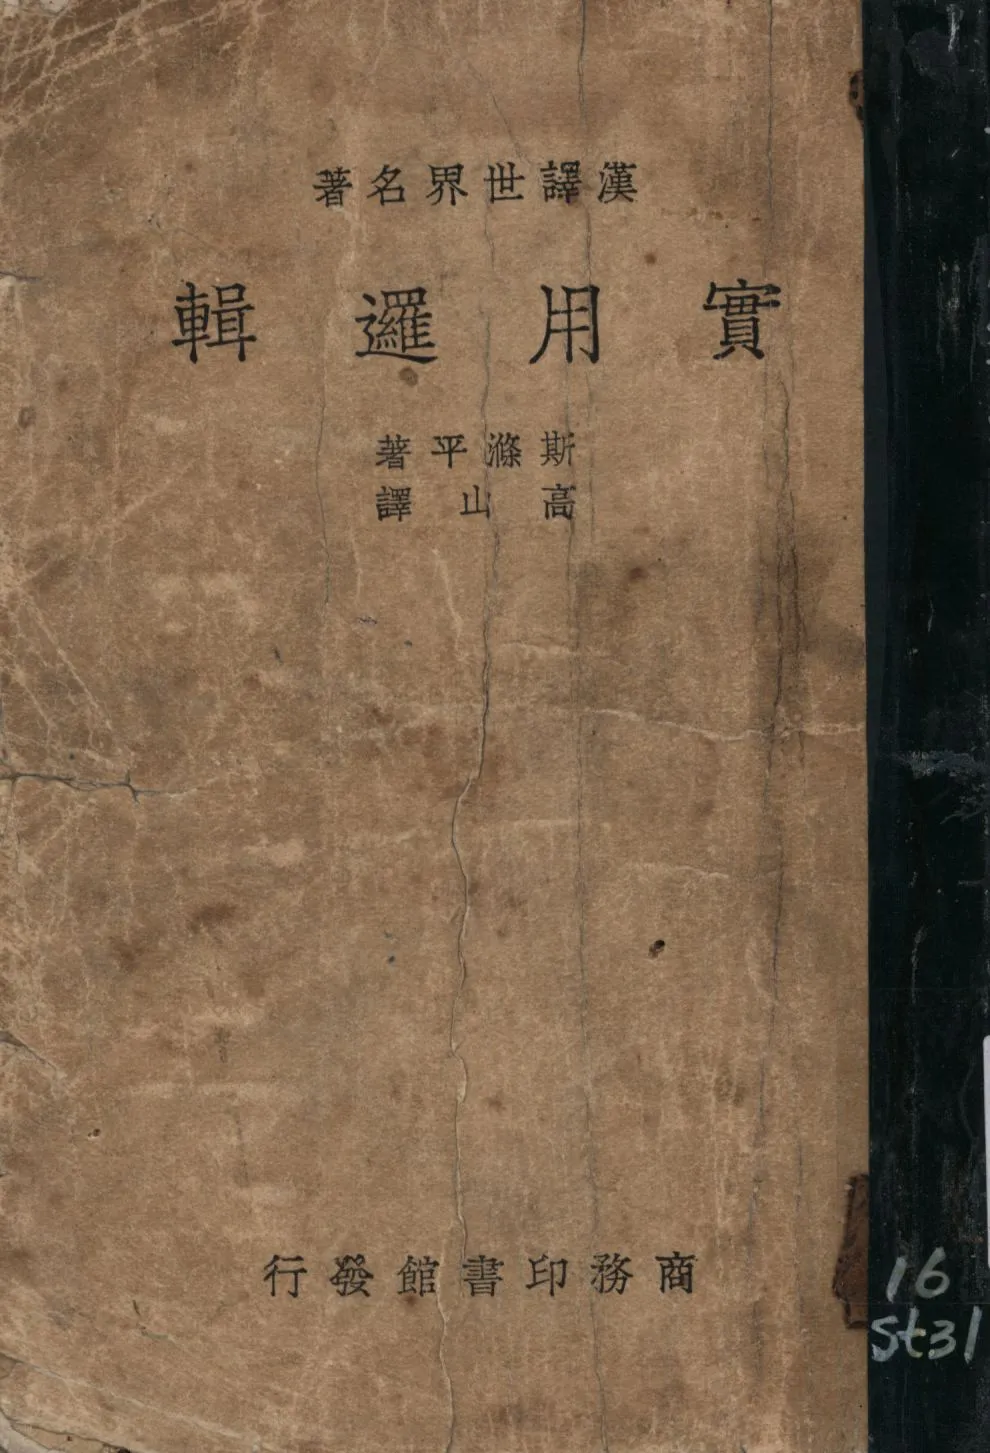 漢譯世界名著
實用邏輯
斯滌平著
高山譯
商務印書館發行
16
St31